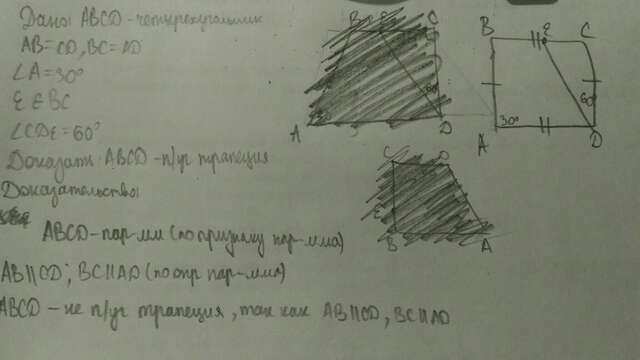 Дано: ABCD - четырехугольник
AB=CD, BC=AD
∠A=30°
E ∈ BC
∠CDE=60°
Доказать: ABCD - п/уг трапеция
Доказательство:
ABCD - пар-мм (по признаку пар-мма)
AB||CD; BC||AD (по опр пар-мма)
ABCD - не п/уг трапеция, так как AB||CD, BC||AD
B E C
A D
60°
B E C
30° 60°
A D
C D
E
B A